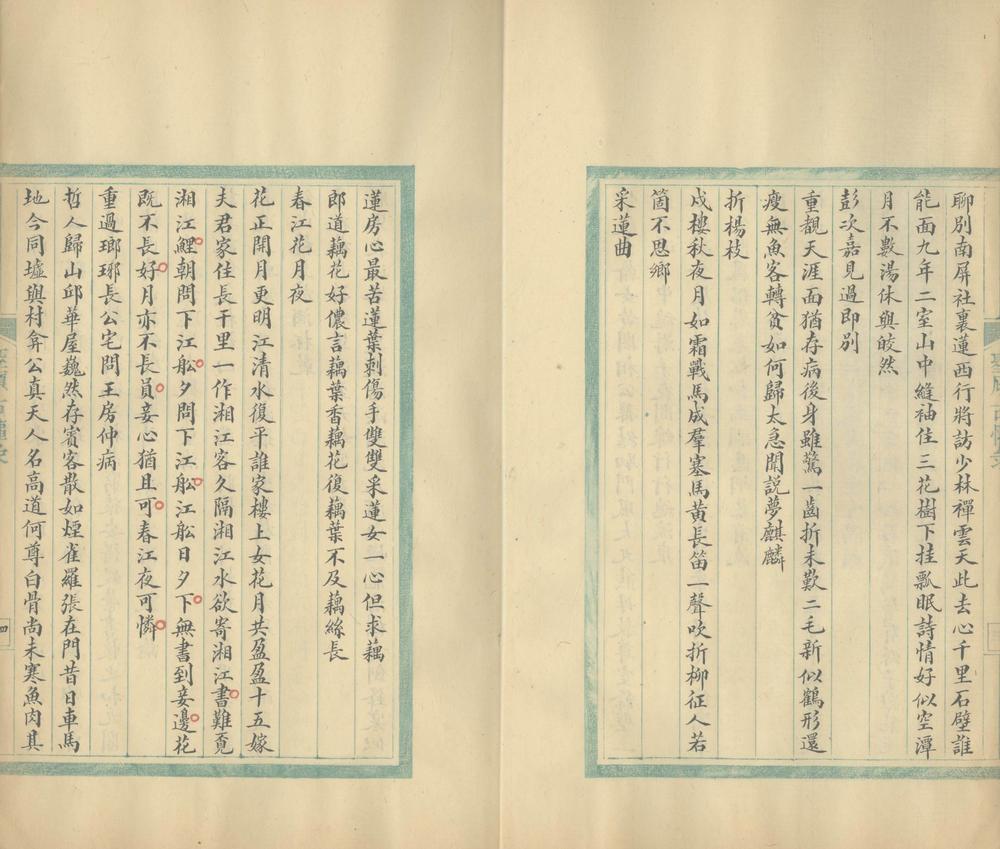 聊別南屏社裏蓮西行將訪少林禪雲天此去心千里石壁誰
能面九年二室山中縫袖住三花樹下挂瓢眠詩情好似空潭
月不數湯休與皎然
彭次嘉見過即別
重觀天涯面猶存病後身雖驚一齒折未歎二毛新似鶴形還
瘦無魚客轉貧如何歸太急聞說夢麒麟
折楊枝
戍樓秋夜月如霜戰馬成羣塞馬黃長笛一聲吹折柳征人若
箇不思鄉
采蓮曲
蓮房心最苦蓮葉刺傷手雙雙采蓮女一心但求藕
郎道藕花好儂言藕葉香藕花復藕葉不及藕絲長
春江花月夜
花正開月更明江清水復平誰家樓上女花月共盈盈十五嫁
夫君家住長干里一作湘江客久隔湘江水欲寄湘江書難覔
湘江鯉朝問下江舩夕問下江舩江舩日夕下無書到妾邊花
既不長好月亦不長員妾心猶且可春江夜可憐
重過瑯琊長公宅問王房仲病
哲人歸山邱華屋巍然存賓客散如煙雀羅張在門昔日車馬
地今同墟與村弇公真天人名高道何尊白骨尚未寒魚肉其
四